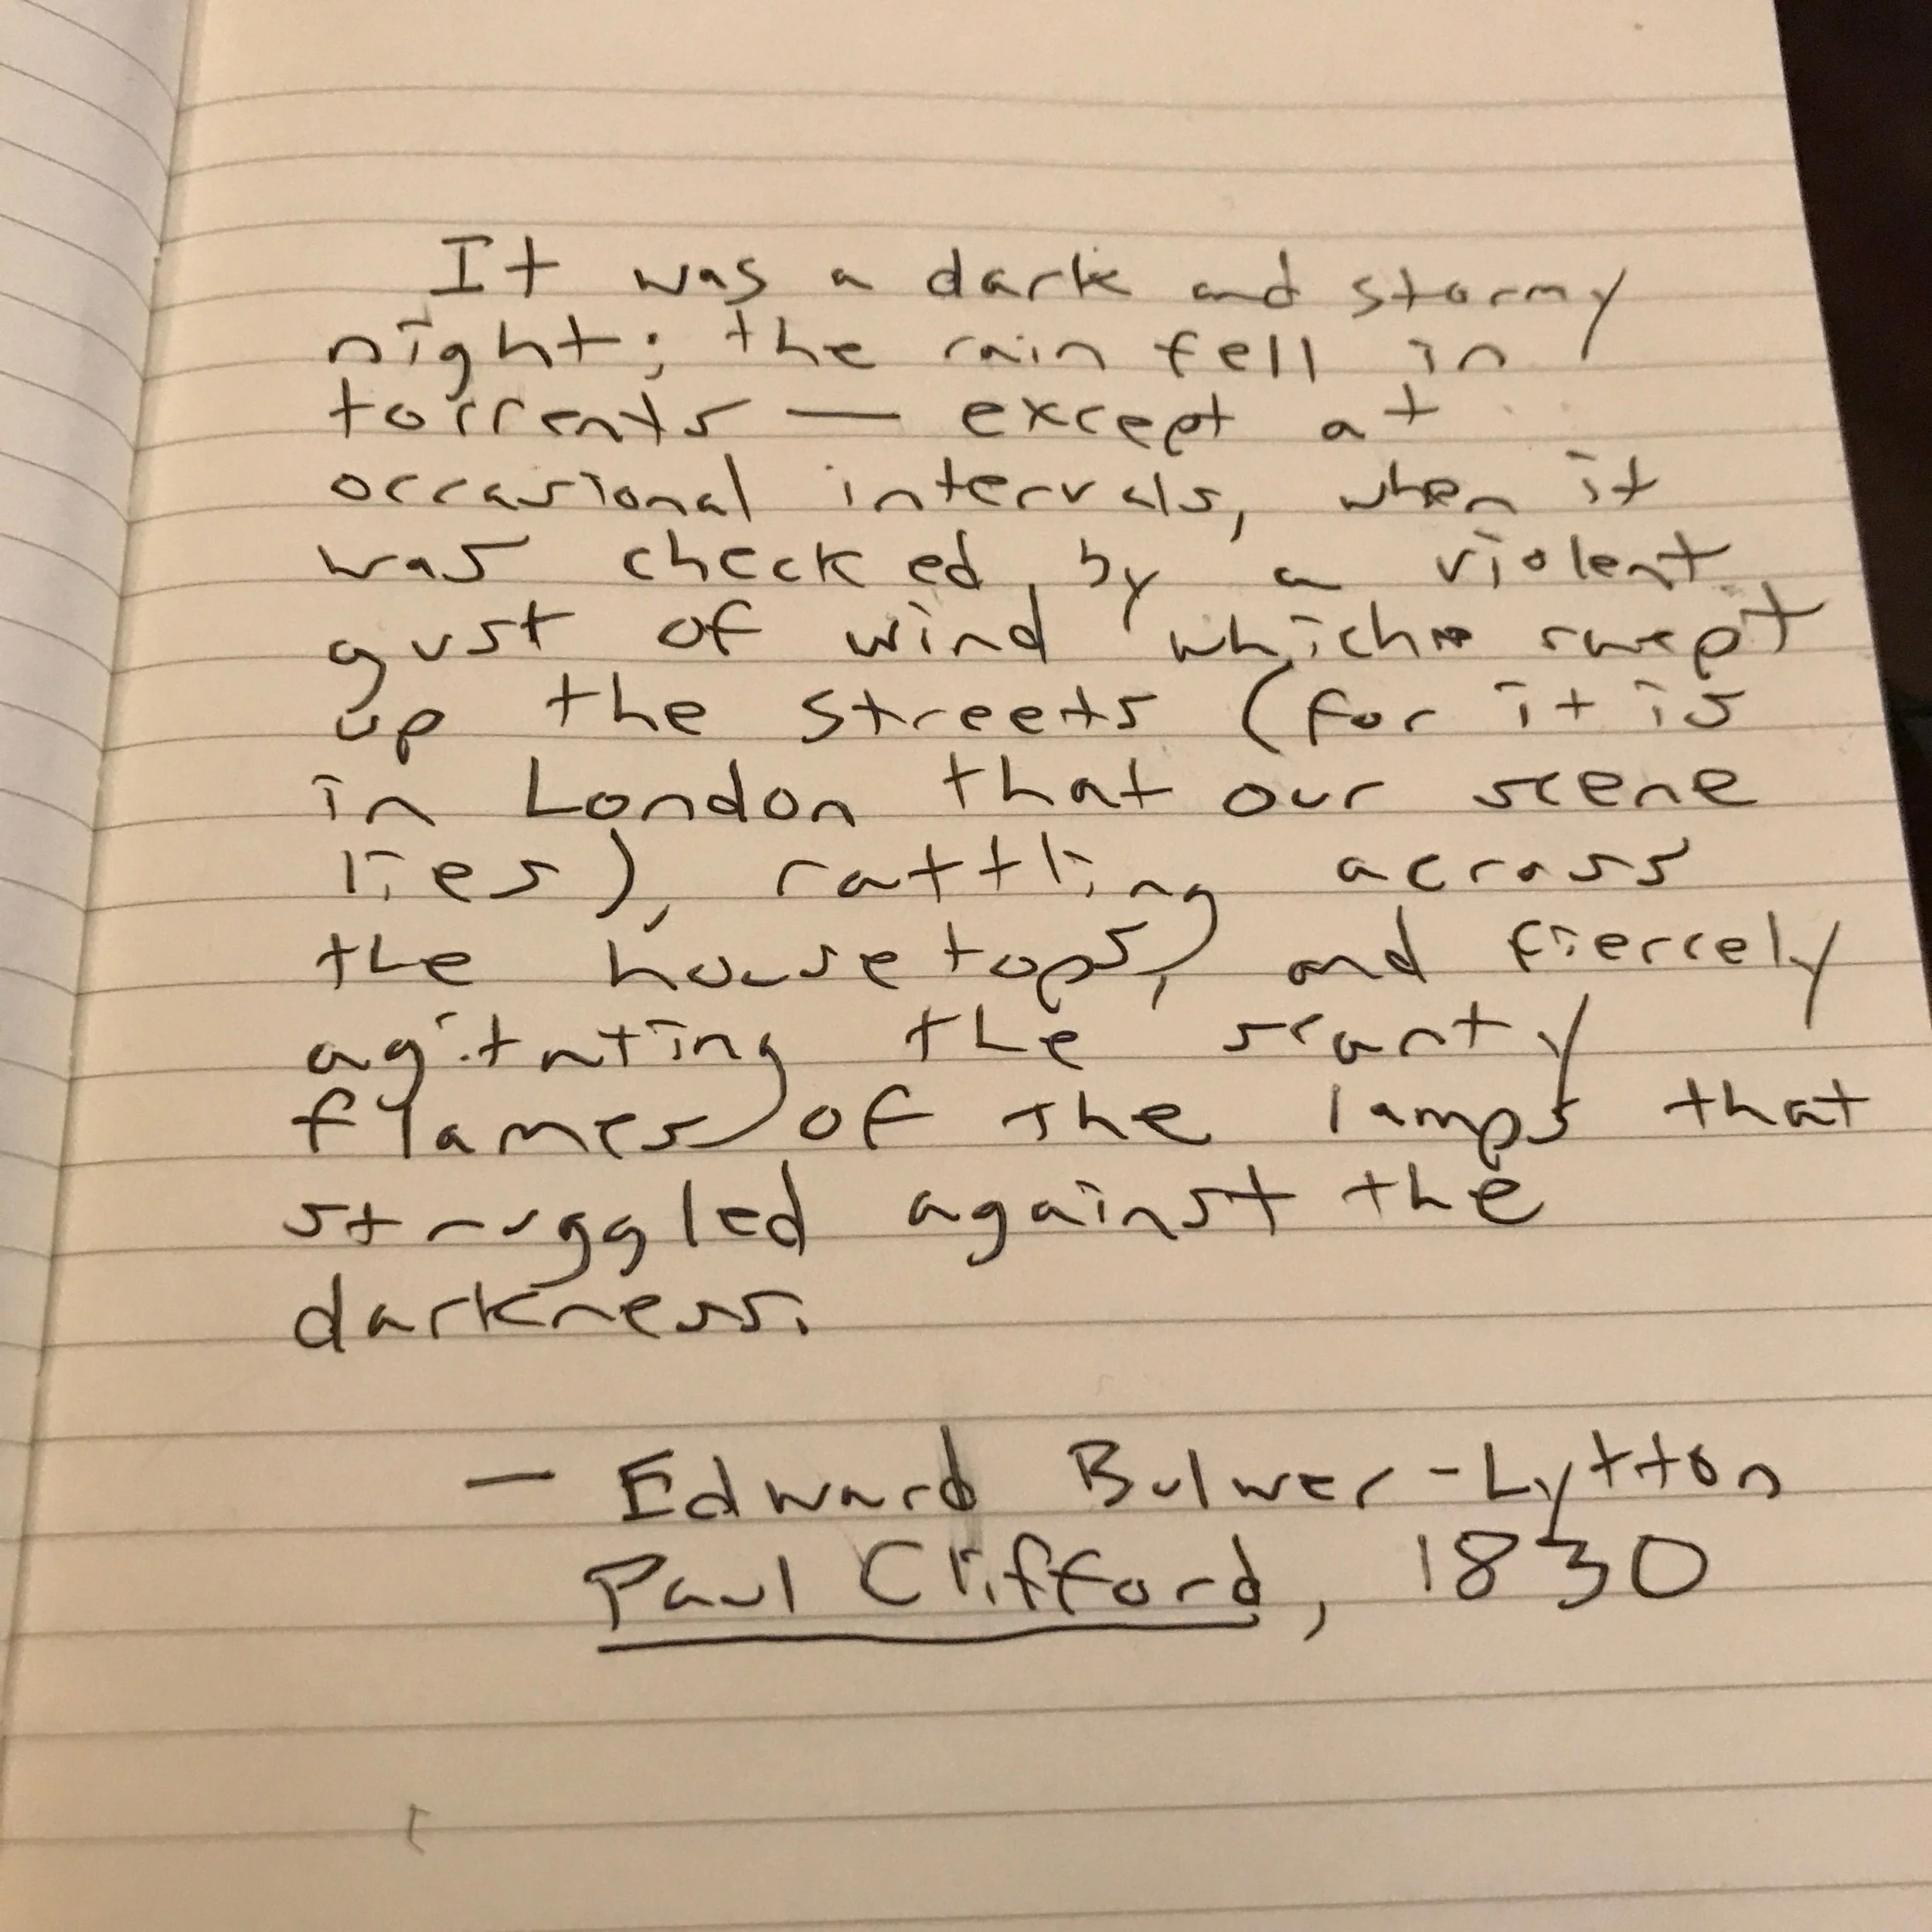 It was a dark and stormy
night; the rain fell in
torrents — except at
occasional intervals, when it
was checked by a violent
gust of wind which swept
up the streets (for it is
in London that our scene
lies), rattling across
the housetops, and fiercely
agitating the scanty
flames of the lamps that
struggled against the
darkness.
— Edward Bulwer-Lytton
Paul Clifford, 1830